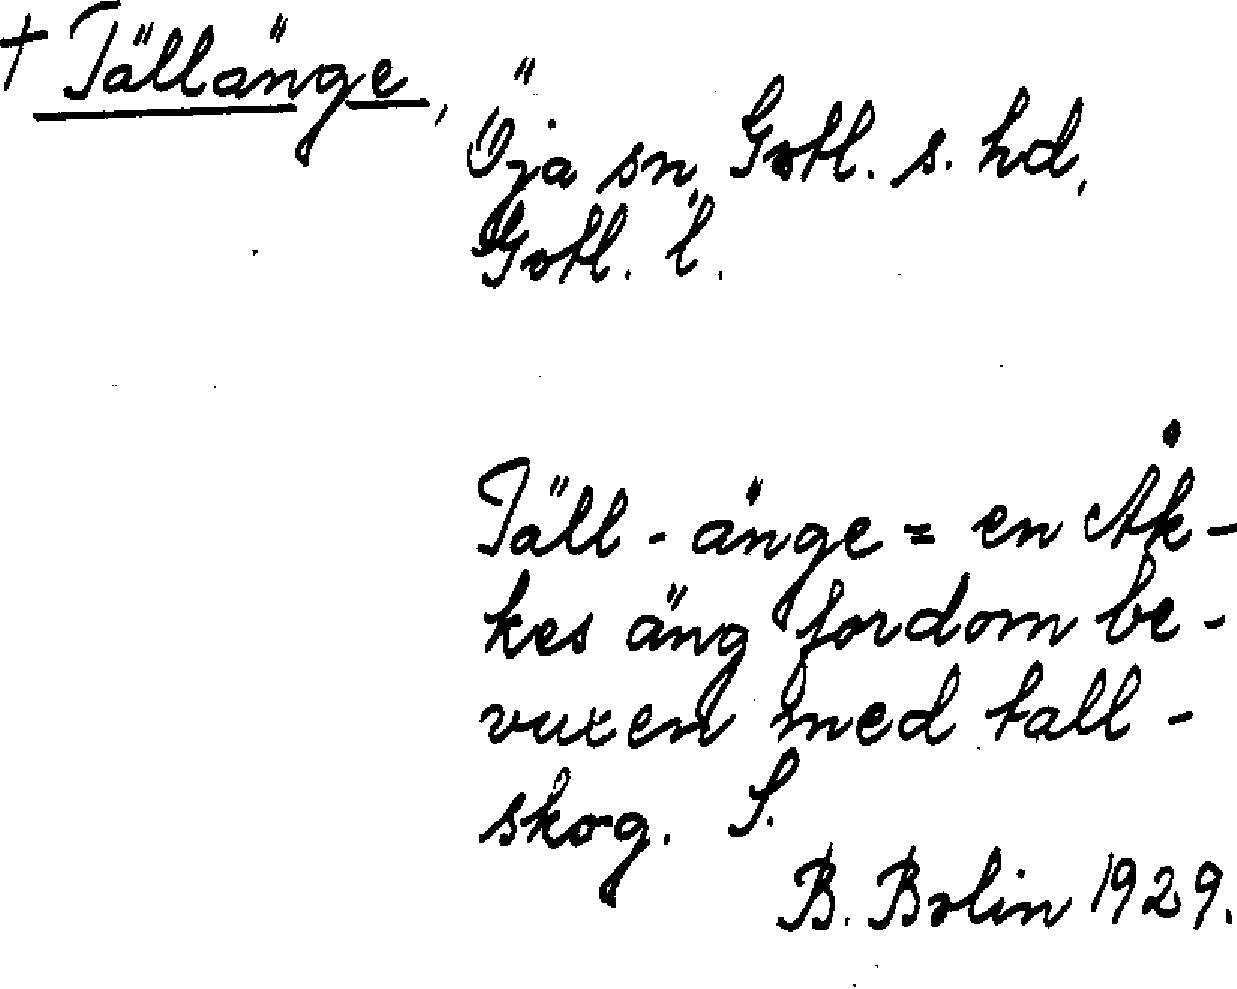 † Tällänge,
Öja sn, Gotl. s. hd,
Gotl. l.
Täll-änge = en Åk-
kes äng fordom be-
vuxen med tall-
skog. S.
B. Bolin 1929.